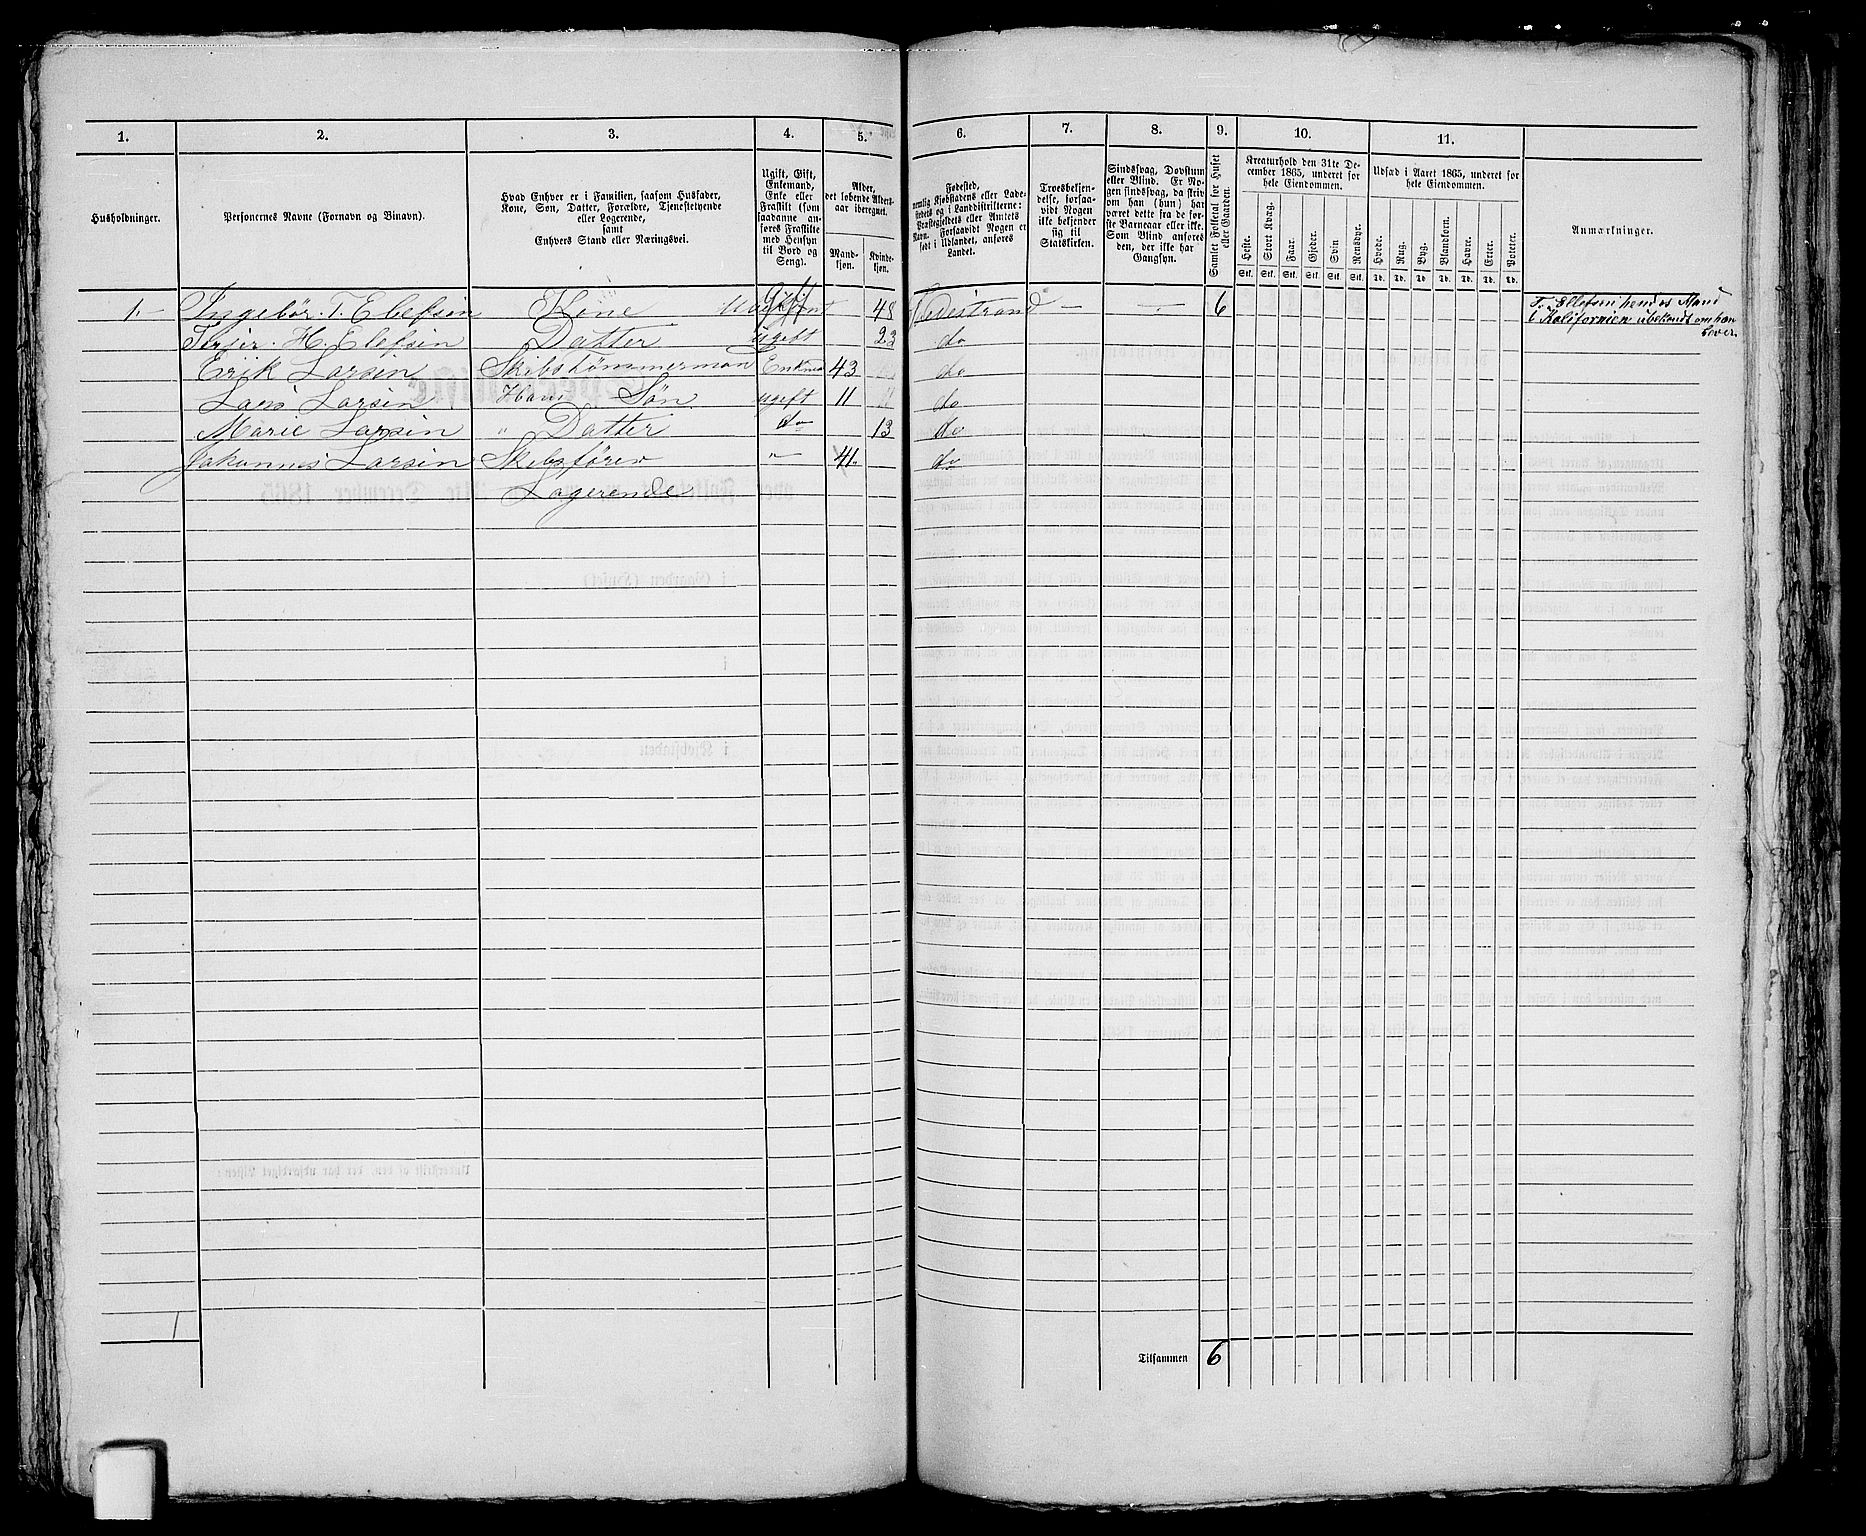 1. 2. 3. 4. 5. 6. 7. 8. 9. 10. 11.
Husholdninger.
Personernes Navne (Fornavn og Binavn).
Hvad Enhver er i Familien, saasom Husfader,
Kone, Søn, Datter, Forældre, Tjenestetyende
eller Logerende,
samt
Enhvers Stand eller Næringsvei.
Ugift, Gift,
Enkemand,
Enke eller
Fraskilt (som
saadanne an-
føres Fraskilte
med Hensyn
til Bord og
Seng).
Alder,
det løbende Alders-
aar iberegnet.
Mand-
kjøn.
Kvinde-
kjøn.
Fødested,
nemlig Kjøbstadens eller Lade-
stedets og i Landdistrikterne:
Præstegjeldets eller Amtets
Navn. Forsaavidt Nogen er
født i Udlandet, anføres
Landet.
Troesbekjen-
delse, forsaa-
vidt Nogen
ikke bekjender
sig til
Statskirken.
Sindssvag, Døvstum
eller Blind. Er No-
gen sindssvag, da skriv
om han (hun) har
været dette fra de før-
ste Barneaar eller ikke.
Som Blind anføres
den, der ikke har
Gangsyn.
Samlet Folketal for Huset
eller Gaarden.
Kreaturhold den 31te De-
cember 1865, underet for
hele Eiendommen.
Heste. Stort Kvæg. Faar. Gjeder. Svin Rensdyr.
Stk. Stk. Stk. Stk. Stk. Stk.
Udsæd i Aaret 1865, underet for
hele Eiendommen.
Hvede. Rug. Byg. Blandkorn. Havre. Erter. Poteter.
Td. Td. Td. Td. Td. Td. Td.
Anmærkninger.
1. Ingebør. T. Elefsin Kone Gift 48 Østedestrand — — 6
T. Ellefsen hendes Mand
i Kalifornien ubekendt om han
lever.
H. Elefsin Datter ugift 23 do
Erik Larsin Skibstømmerman Enkmd 43 do
Lars Larsin Hans Søn ugift 11 do
Marie Larsin " Datter do 13 do
Johannes Larsin Skibsfører " 41. do
Logerende
1
Tilsammen 6